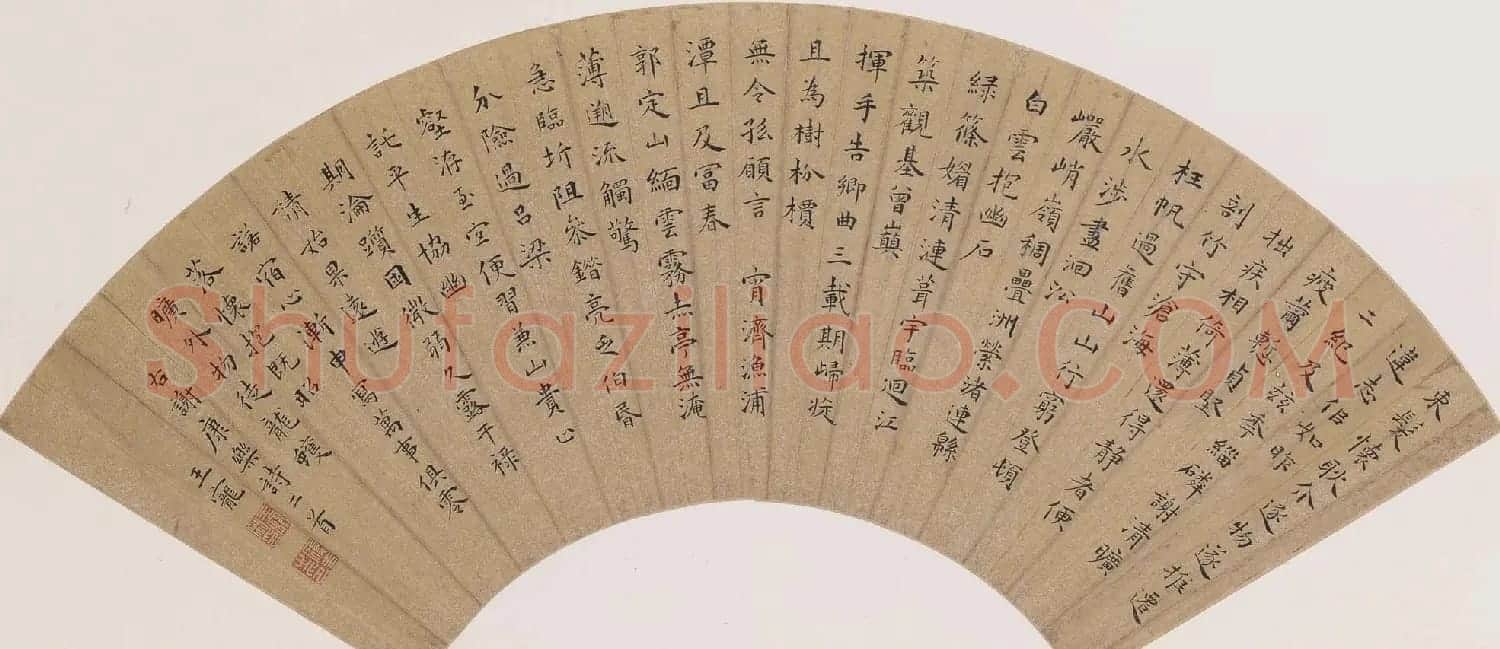 束髮懷耿介逐物遂推遷
違志佀如昨
二紀及茲年緇磷謝清曠
疲薾慙貞堅
拙疾相倚薄還得靜者便
剖竹守滄海
枉帆過舊山山行窮登頓
水涉盡洄沿
巖峭嶺稠疊洲縈渚連緜
白雲抱幽石
緑篠媚清漣葺宇臨迴江
築觀基曾巔
揮手告鄉曲三載期歸旋
且為樹枌檟
無令孤願言 宵濟漁浦
潭且及富春
郭定山緬雲霧赤亭無淹
薄遡流觸驚
急臨圻阻參錯亮乏伯昏
分險過呂梁
壑洊至宜便習兼山貴止
託平生協幽
期淪躓困微弱久露干祿
請始果遠遊
諾宿心漸申寫萬事俱零
落懷抱既昭
曠外物徒龍蠖
右謝康樂詩二首
王寵
Shufaziliao.COM